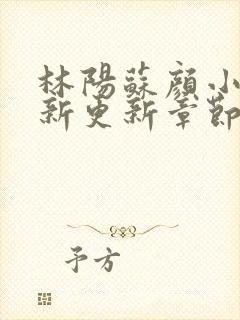 林陽蘇顔小
新更新章節
予方